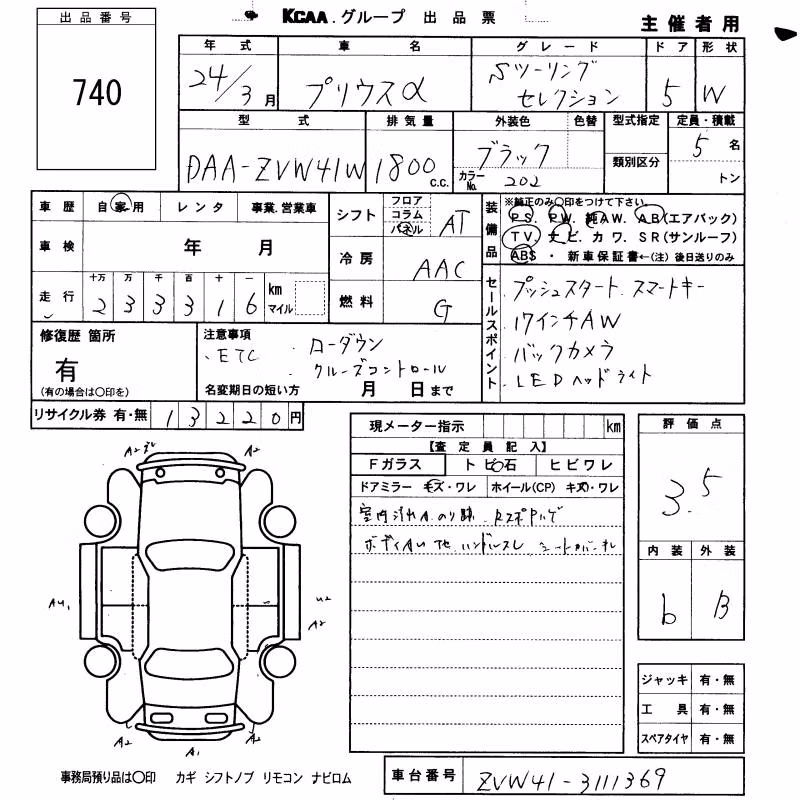 出品番号
740
KCAA.グループ 出品票
主催者用
年式 車名 グレード ドア 形状
24/3月 プリウスα Sツーリング セレクション 5 W
型式 排気量 外装色 色替 型式指定 定員・積載
DAA-ZVW41W 1800 c.c. ブラック カラーNo. 202 類別区分 5名 トン
車歴 自家用 レンタ 事業.営業車
車検 年 月
走行 十万 万 千 百 十 一 km マイル
2 3 3 3 1 6
シフト フロア コラム パネル AT
冷房 AAC
燃料 G
装備品 ※純正のみ〇印をつけて下さい。
PS. PW. 純AW. AB(エアバック)
TV. ナビ カワ. SR(サンルーフ)
ABS・新車保証書←(注)後日送りのみ
セールスポイント
.プッシュスタート.スマートキー
.17インチAW
.バックカメラ
.LEDヘッドライト
修復歴 箇所
有
(有の場合は〇印を)
注意事項
.ETC .ローダウン
.クルーズコントロール
名変期日の短い方 月 日まで
リサイクル券 有・無 13220円
現メーター指示 km
【査定員記入】
Fガラス トビ石 ヒビワレ
ドアミラー キズ・ワレ ホイール(CP) キズ・ワレ
室内汚れ
評価点
3.5
内装 外装
b B
A2
A2
U2
A2
A2
A1
A2
ジャッキ 有・無
工具 有・無
スペアタイヤ 有・無
事務局預り品は〇印 カギ シフトノブ リモコン ナビロム
車台番号 ZVW41-3111369